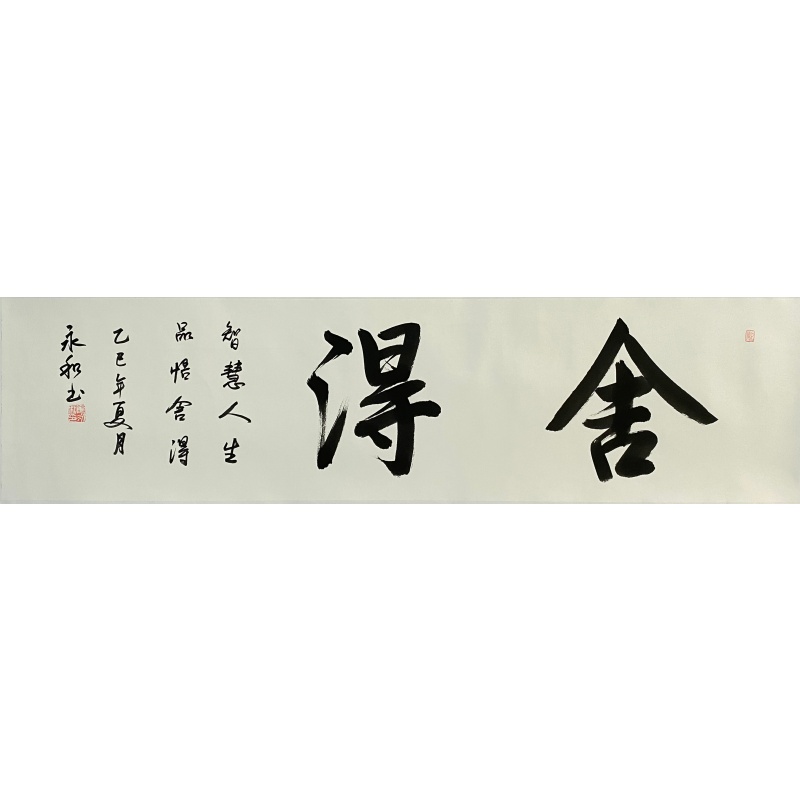 舍得
智慧人生
品悟舍得
乙巳年夏月
永和书